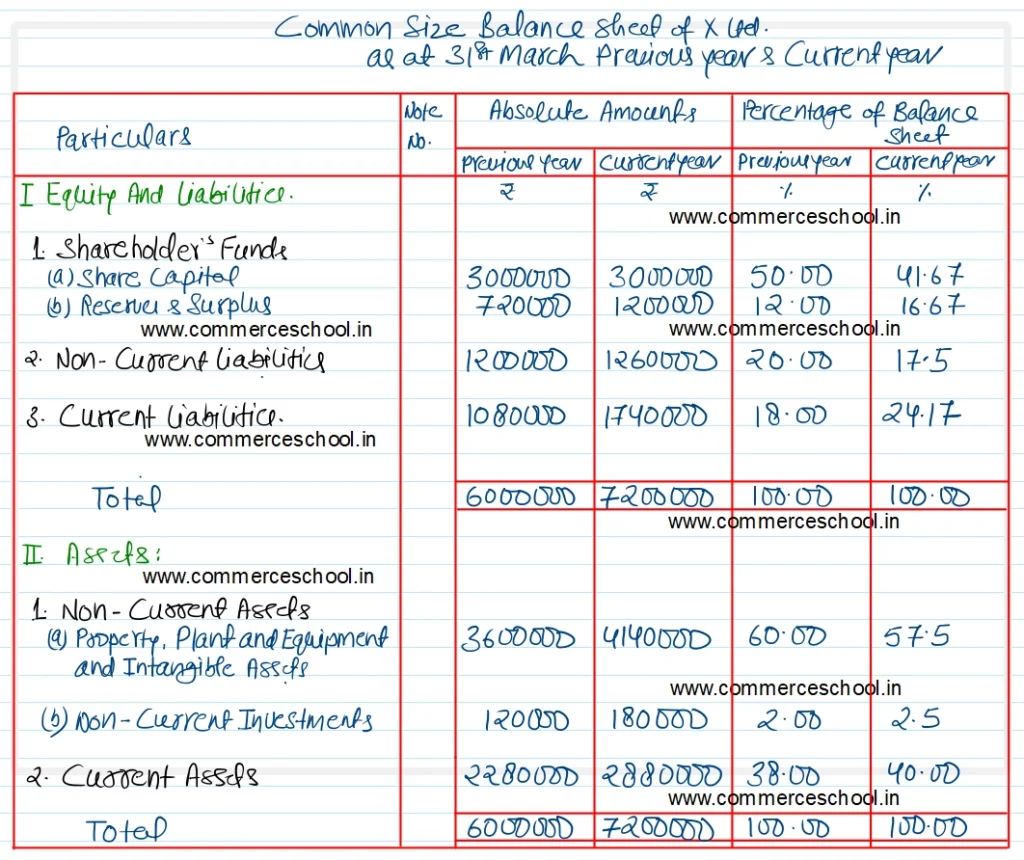 Common Size Balance Sheet of X Ltd.
as at 31st March Previous year & Current year
Particulars Note No. Absolute Amounts Percentage of Balance Sheet
Previous year Current year Previous year Current year
I Equity And Liabilities. ₹ ₹ % %
www.commerceschool.in
1. Shareholder's Funds
(a) Share Capital 3000000 3000000 50.00 41.67
(b) Reserves & Surplus 720000 1200000 12.00 16.67
www.commerceschool.in www.commerceschool.in
2. Non-Current Liabilities 1200000 1260000 20.00 17.5
3. Current Liabilities. 1080000 1740000 18.00 24.17
www.commerceschool.in
Total 6000000 7200000 100.00 100.00
www.commerceschool.in
II. Assets:
www.commerceschool.in
1. Non-Current Assets
(a) Property, Plant and Equipment 3600000 4140000 60.00 57.5
and Intangible Assets
www.commerceschool.in
(b) Non-Current Investments 120000 180000 2.00 2.5
2. Current Assets 2280000 2880000 38.00 40.00
www.commerceschool.in
Total 6000000 7200000 100.00 100.00